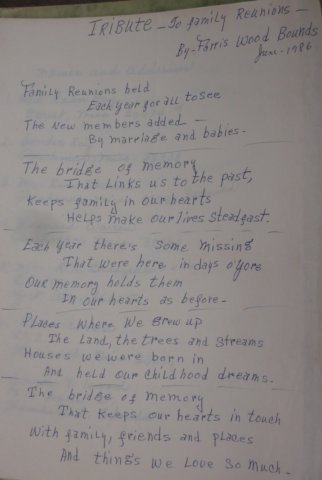 Tribute - To family Reunions -
By - Farris Wood Bounds
June - 1986
Family Reunions held
Each year for all to see
The New members added -
By marriage and babies -
The bridge of memory
That Links us to the past,
Keeps family in our hearts
Helps make our lives Steadfast.
Each year there's some missing
That were here in days o'yore
Our memory holds them
In our hearts as before -
Places where we grew up
The Land, the trees and streams
Houses we were born in
And held our childhood dreams.
The bridge of memory
That keeps our hearts in touch
With family, friends and places
And thing's we Love so much -